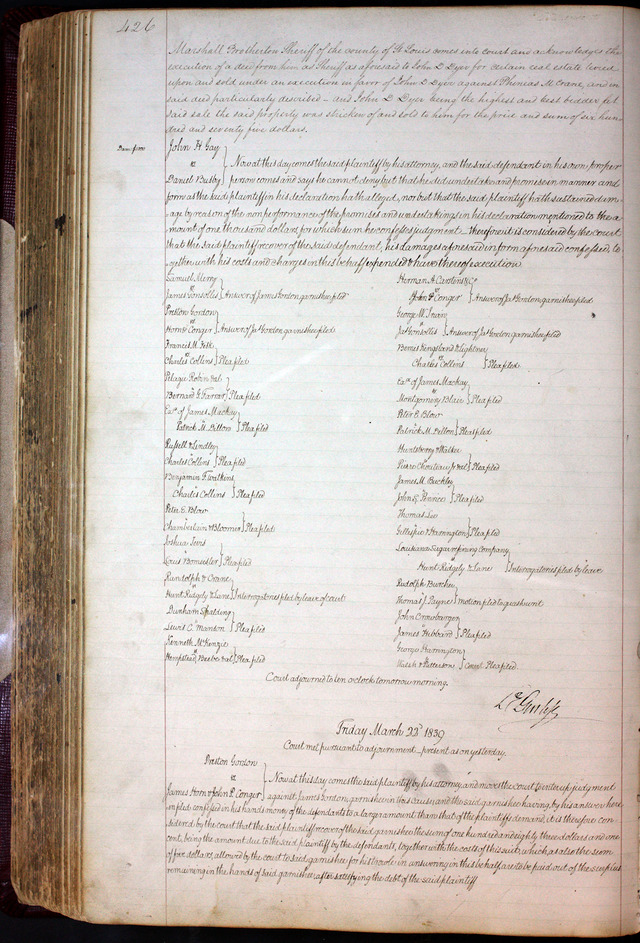 426
Marshall Brotherton Sheriff of the county of St Louis comes into court and acknowledges the
execution of a deed from him as Sheriff as aforesaid to John D Dyer for certain real estate levied
upon and sold under an execution in favor of John D Dyer against Phenias M. Crane, and in
said deed particularly described – and John D Dyer being the highest and best bidder for
said sale the said property was stricken of and sold to him for the price and sum of six hun
dred and seventy five dollars.
John H Gay
vs
Now at this day comes the said plaintiff by his attorney, and the said defendant in his own proper
Daniel Busby person comes and says he cannot deny but that he did undertake and promise in manner and
form as the said plaintiff in his declaration hath alleged, nor but that the said plaintiff hath sustained dam-
age by reason of the non performance of the promises and undertakings in his declaration mentioned to the a-
mount of one thousand dollars, for which sum he confesses judgment – therefore it is considered by the court
that the said plaintiff recover of the said defendant, his damages aforesaid in form aforesaid confessed, to
gether with his costs and charges in this behalf expended & have thereof execution
Samuel Merry
vs
James Gonsolles Answer of James Gordon garnishee filed
Preston Gordon
vs
Horn & Conger Answer of Jas Gordon garnishee filed
Francis M.
vs
Charles Collins Plea filed
Pelagie Robin et al
vs
Bernard G. Farrar Plea filed
Exs. of James Mackay
vs
Patrick M. Dillon Plea filed
Russell & Lindley
vs
Charles Collins Plea filed
Benjamin F. Watkins
vs
Charles Collins Plea filed
Peter E. Blow
vs
Chamberlain & Bloomer Plea filed
Joshua
vs
Louis Plea filed
Randolph & Crane
vs
Hunt Ridgely & Lane Interrogatories filed by leave of court
Dunham Spalding
vs
Lewis C. Plea filed
Kenneth McKenzie
vs
Hempstead Beebe et al Plea filed
Herman A. Carstens & Co
vs
John P. Conger Answer of Jas Gordon garnishee filed
George W.
vs
Jas Gonsolles Answer of Jas Gordon garnishee filed
Kingsland & Lightner
vs
Charles Collins Plea filed
Exs. of James Mackay
vs
Montgomery Blair Plea filed
Peter E Blow
vs
Patrick M. Dillon Plea filed
Huntsberry & Walker
vs
Pierre Chouteau Jr et al Plea filed
James M. Buckley
vs
John Plea filed
Thomas Lee
vs
Gillespie & Harrington Plea filed
Louisiana Sugar refining company
vs
Hunt Ridgely & Lane Interrogatories filed by leave
Rudolph Burcher
vs
Thomas J Payne motion filed to quash writ
John Crowbarger
vs
James Hibbard Plea filed
George Harrington
vs
Walsh & Pattersons Plea filed
Court adjourned to ten o'clock tomorrow morning.
Friday March 22d 1839
Court met pursuant to adjournment – present as on yesterday.
Preston Gordon
vs
Now at this day comes the said plaintiff by his attorney and moves the court to enter up judgment
James Horn & John P. Conger against James Gordon, garnishee in this cause, and the said garnishee having, by his answer here-
in filed confessed in his hands money of the defendants to a larger amount than that of the plaintiffs demand, it is therefore con
sidered by the court that the said plaintiff recover of the said garnishee the sum of one hundred and eighty three dollars and one
cent, being the amount due to the said plaintiff by the defendants, together with the costs of this suit, which as also the sum
of four dollars, allowed by the court to said garnishee for his trouble in answering in this behalf are to be paid out of the surplus
remaining in the hands of said garnishee after satisfying the debt of the said plaintiff